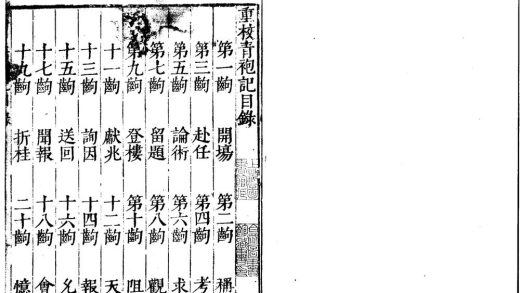 重校青袍記目錄
第一齣 開場 第二齣 稱
第三齣 赴任 第四齣 考
第五齣 論術 第六齣 求
第七齣 留題 第八齣 觀
第九齣 登樓 第十齣
十一齣 獻兆 十二齣 天
十三齣 詢因 十四齣 報
十五齣 送回 十六齣 允
十七齣 聞報 十八齣 會
十九齣 折桂 二十齣 憶